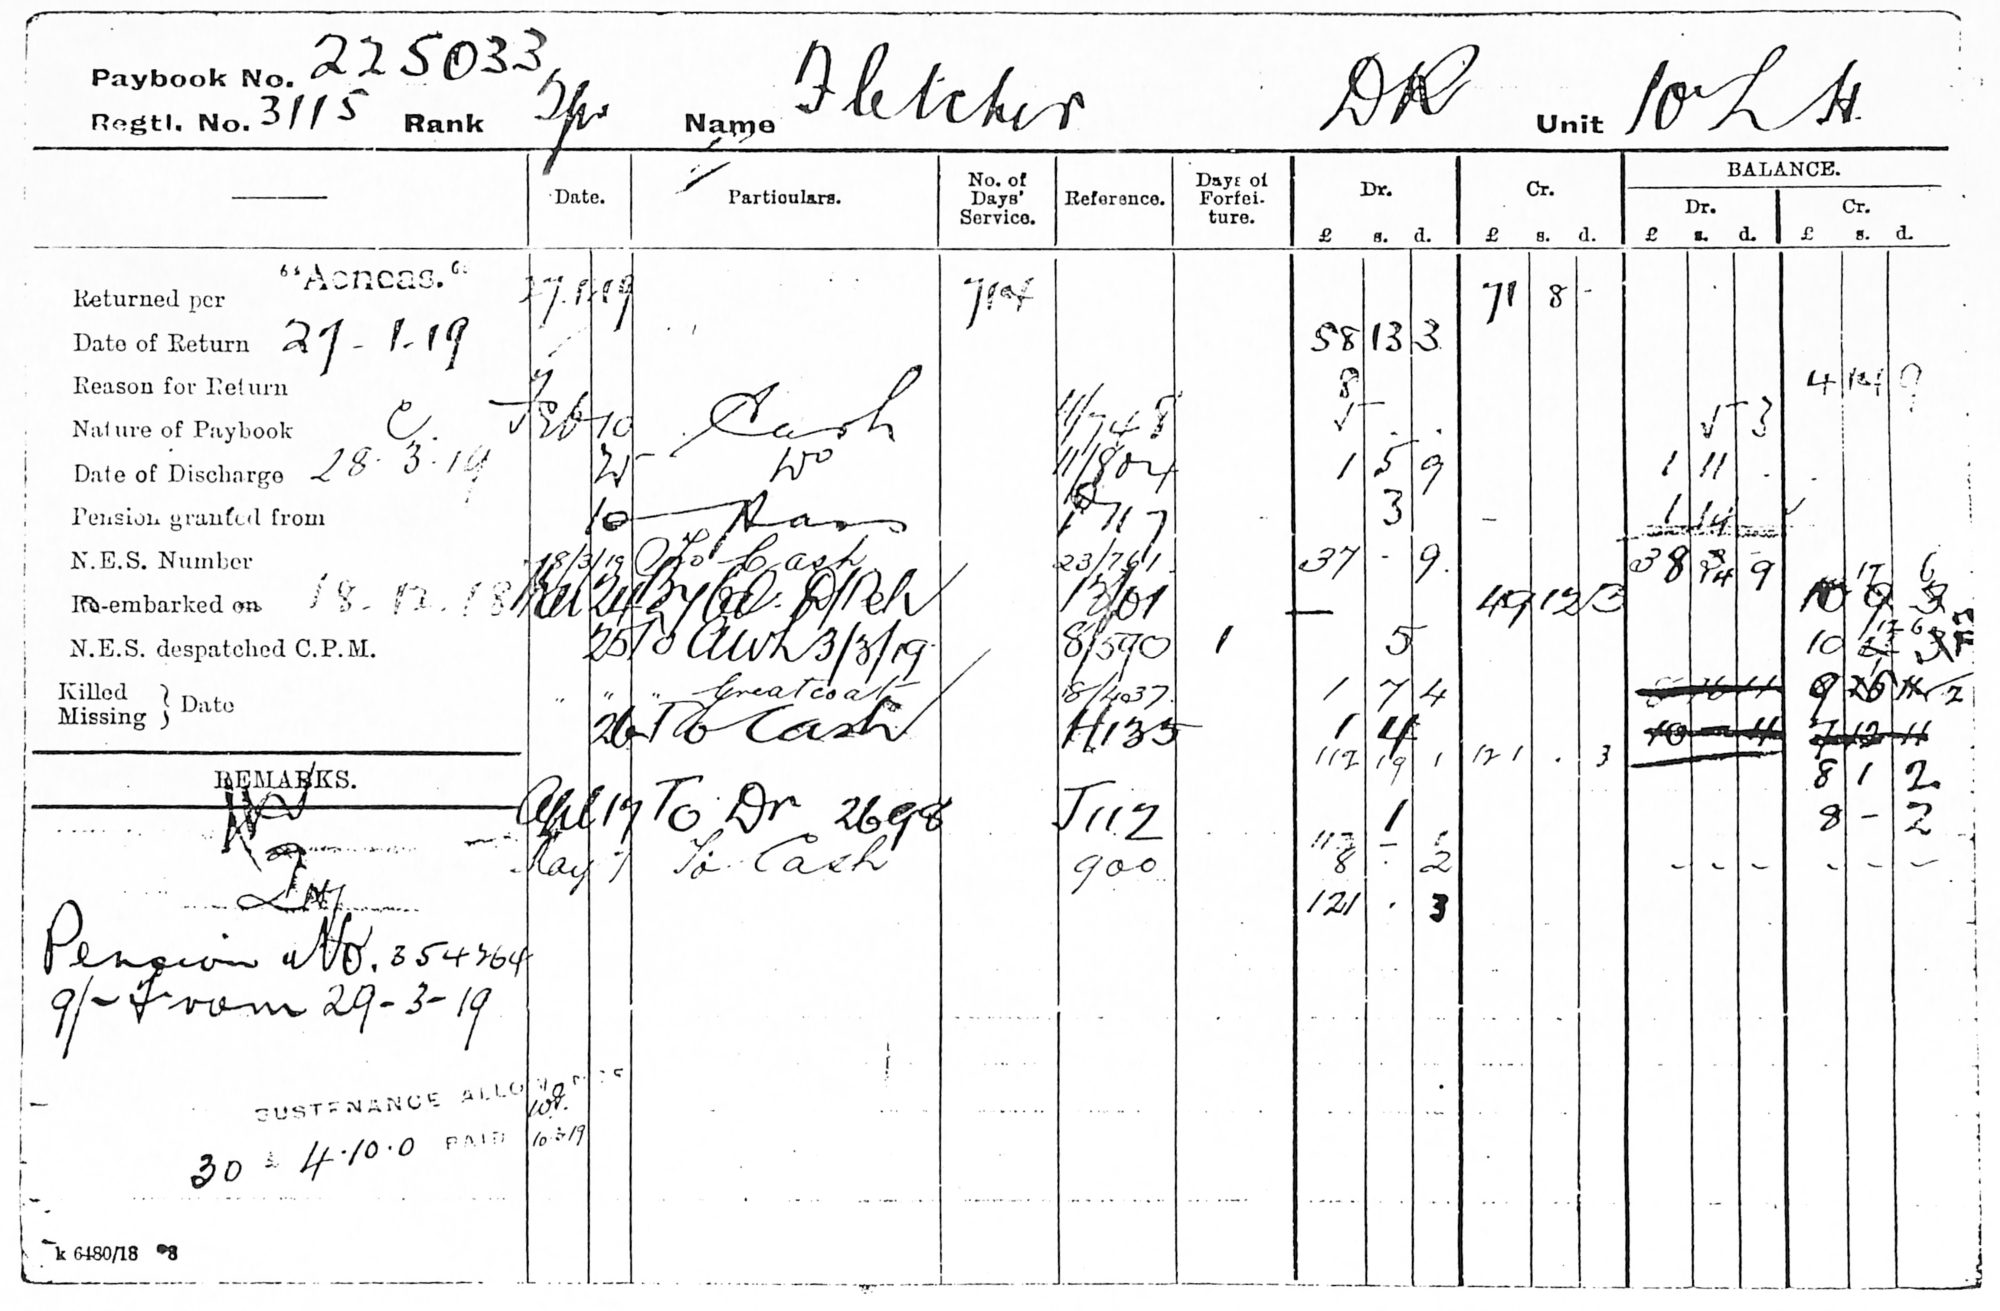 Paybook No. 225033
Regtl. No. 3115 Rank Tpr Name Fletcher DR Unit 10 L H.
Date. Particulars. No. of Days' Service. Reference. Days of Forfeiture. Dr. Cr. BALANCE.
Dr. Cr.
£ s. d. £ s. d. £ s. d. £ s. d.
Returned per "Aeneas." 27.1.19 714 71 8 -
Date of Return 27-1-19 58 13 3
Reason for Return 8 4 14 9
Nature of Paybook C. Feb 10 Cash 11/745
Date of Discharge 28.3.19 25 Do 11/804 1 5 9 1 11
Pension granted from 10 1 717 3 1 14
N.E.S. Number 18/3/19 To Cash 23/761 37 - 9 38 14 9
Re-embarked on 18-12-18 24 13/01 49 12 3
N.E.S. despatched C.P.M. 25 To Awl 3/3/19 8/590 1 5 10
Killed
Missing } Date " " " Greatcoat 18/4037 1 7 4
26 To Cash H135 1 4
112 19 1 121 . 3
REMARKS. 8 1 2
Apl 17 To Dr 2698 J112 1 8 - 2
113 -
May 7 To Cash 900 8 - 2 - - - - - -
121 . 3
Pension No. 354764
9/- from 29-3-19
SUSTENANCE ALLOWANCE
30 £ 4.10.0 PAID 10.3.19
k 6480/18